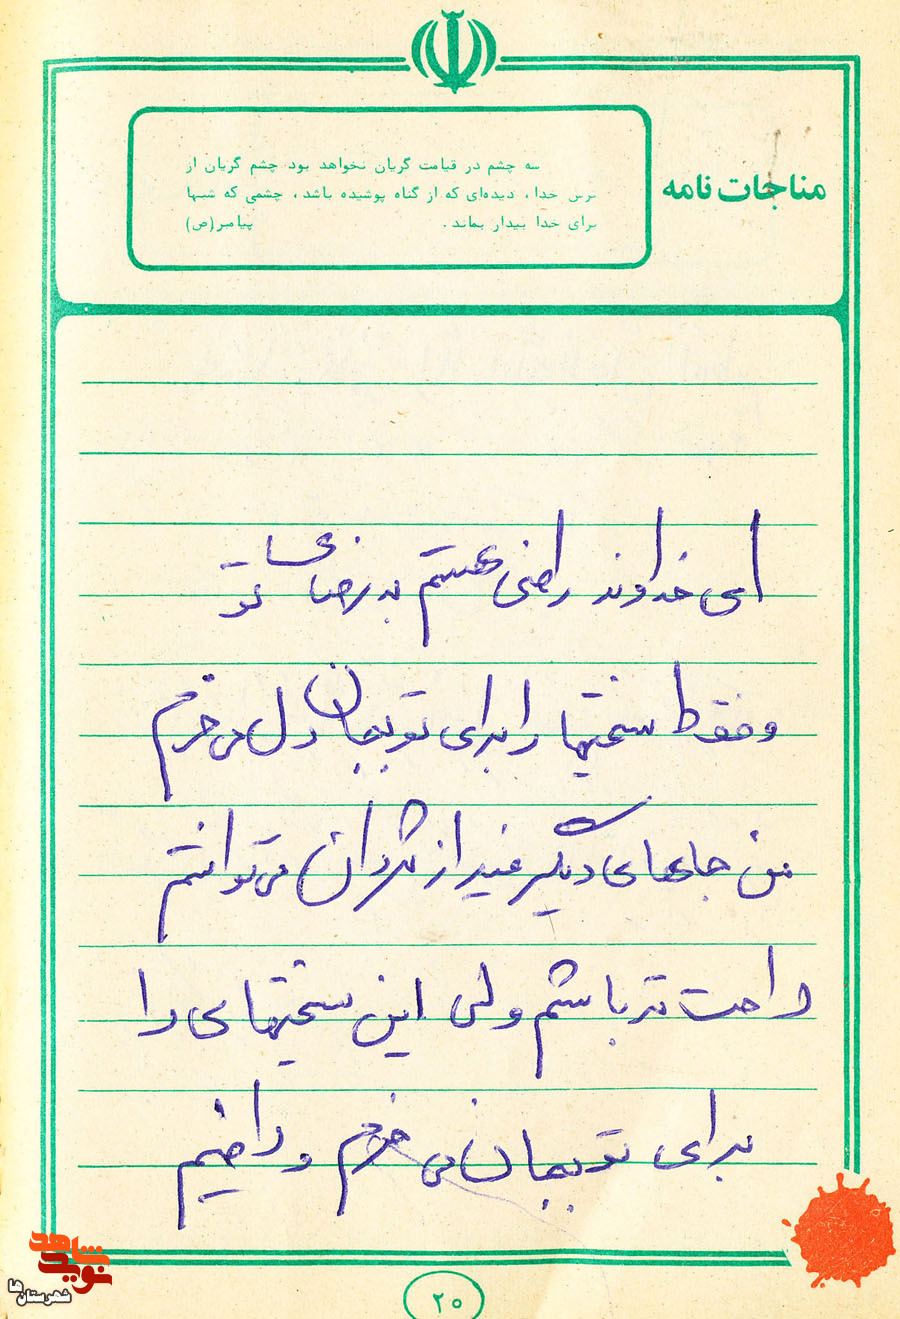 مناجات نامه
سه چشم در قیامت گریان نخواهد بود چشم گریان از
ترس خدا، دیده‌ای که از گناه پوشیده باشد، چشمی که شبها
برای خدا بیدار بماند. پیامبر(ص)
ای خداوند راضی هستم به رضای تو
و فقط سختیها را برای تو بجان و دل می خرم
من جاهای دیگر غیر از گردان می توانستم
راحت تر باشم ولی این سختیهای را
برای تو بجان می خرم و راضیم
۲۰
نوید شاهد
شهرستان‌ها